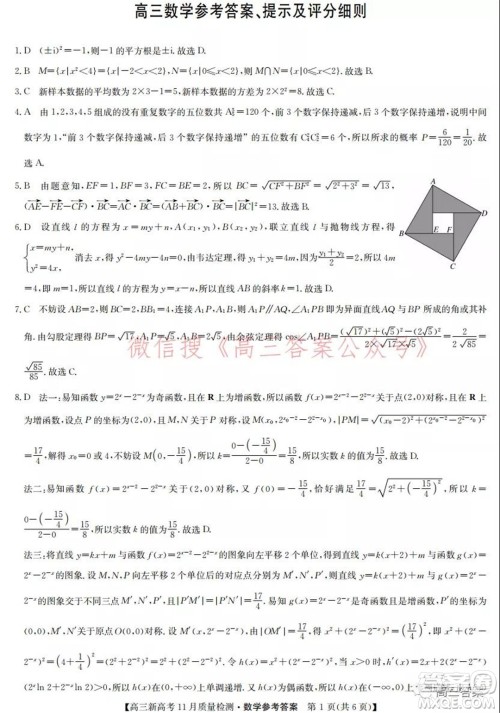 高三数学参考答案、提示及评分细则
1. D (±i)²=-1,则-1的平方根是±i.故选D.
2. B M={x|x²<4}={x|-2<x<2},N={x|0≤x≤2},则M∩N={x|0≤x<2}.故选B.
3. C 新样本数据的平均数为2×3-1=5,新样本数据的方差为2×2²=8.故选C.
4. A 由1,2,3,4,5组成的没有重复数字的五位数共A⁵₅=120个,前3个数字保持递减,后3个数字保持递增,说明中间
数字为1,“前3个数字保持递减,后3个数字保持递增”的五位数有C²₄C²₂=6个,所以所求的概率P=6/120=1/20.故
选A.
5. B 由题意知,EF=1,BF=3,FC=BE=2,所以BC=√(CF²+BF²)=√(2²+3²)=√13,
(AE-FE-CF)·BC=AC·BC=(AB+BC)·BC=|BC|²=13.故选B.
A
B
E
F
D
C
6. D 设直线l的方程为x=my+n,A(x₁,y₁),B(x₂,y₂),联立直线l与抛物线方程,得
{x=my+n, y²=4x, 消去x,得y²-4my-4n=0,由韦达定理,得y₁+y₂=4m,因为(y₁+y₂)/2=2,所以4m
=4,即m=1,所以直线l的方程为x=y+n,所以直线l的斜率k=1.故选D.
7. C 不妨设AB=2,则BC=2,AA₁=4,连接A₁P,A₁B,则A₁P∥AQ,∠A₁PB即为异面直线AQ与BP所成的角或其补
角.由勾股定理得BP=√17,A₁P=√5,A₁B=2√5,由余弦定理得cos∠A₁PB=((√17)²+(√5)²-(2√5)²)/(2×√17×√5)=2/(2√85)=
√85/85.故选C.
8. D 法一:易知函数y=2ˣ-2⁻ˣ为奇函数,且在R上为增函数,所以函数f(x)=2ˣ⁻²-2²⁻ˣ关于点(2,0)对称,且在R
上为增函数,设点P的坐标为(2,0),设M(x₀,2^(x₀-2)-2^(2-x₀)),|PM|=√((x₀-2)²+(2^(x₀-2)-2^(2-x₀))²)
=17/4,解得x₀=0或4,不妨设M(0,-15/4),所以k=(0-(-15/4))/(2-0)=15/8,所以实数k的值为15/8.故选D.
法二:易知函数f(x)=2ˣ⁻²-2²⁻ˣ的对称中心为(2,0),又f(0)=-15/4,恰好满足17/4=√(2²+(-15/4)²),所以k=
(0-(-15/4))/(2-0)=15/8,所以实数k的值为15/8.故选D.
法三:将直线y=kx+m与函数f(x)=2ˣ⁻²-2²⁻ˣ的图象向左平移2个单位,得到直线y=k(x+2)+m与函数g(x)=
2ˣ-2⁻ˣ的图象.设M,N,P向左平移2个单位后的对应点分别为M′,N′,P′,则直线y=k(x+2)+m与函数g(x)=2ˣ-2⁻ˣ
的图象交于不同三点M′,N′,P′,且|P′M′|=|P′N′|=17/4.易知函数g(x)=2ˣ-2⁻ˣ是奇函数且是增函数,所以P′的坐标为
(0,0),M′,N′关于原点O(0,0)对称.设M′(x,2ˣ-2⁻ˣ),由|OM′|=17/4,得x²+(2ˣ-2⁻ˣ)²=(17/4)²,即x²+(2ˣ-
2⁻ˣ)²=(4+1/4)²=(2²+2⁻²)²=2²+(2²-2⁻²)².令h(x)=x²+(2ˣ-2⁻ˣ)²,则h(x)=h(2),又h′(x)=2x+2(2ˣ-2⁻ˣ)
(2ˣln 2+2⁻ˣln 2)=2x+
【高三新高考11月质量检测·数学参考答案 第1页(共6页)】
微信搜《高三答案公众号》
高三答案